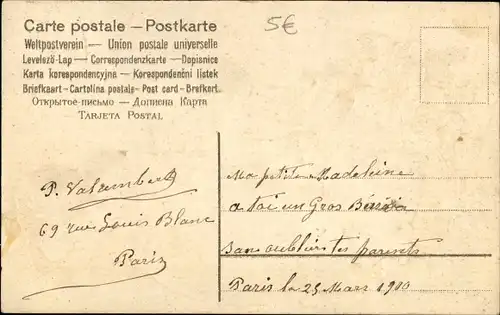 Carte postale — Postkarte
5€
Weltpostverein — Union postale universelle
Levelező-Lap — Correspondenzkarte — Dopisnice
Karta korespondencyjna — Korespondenční listek
Briefkaart - Cartolina postale - Post card - Brefkort.
Открытое письмо — Дописна Карта
TARJETA POSTAL
P. Valrembert
69 rue Louis Blanc
Paris
Ma petite Madeleine
a toi un Gros
San oublier tes parents
Paris le 25 Mars 1910